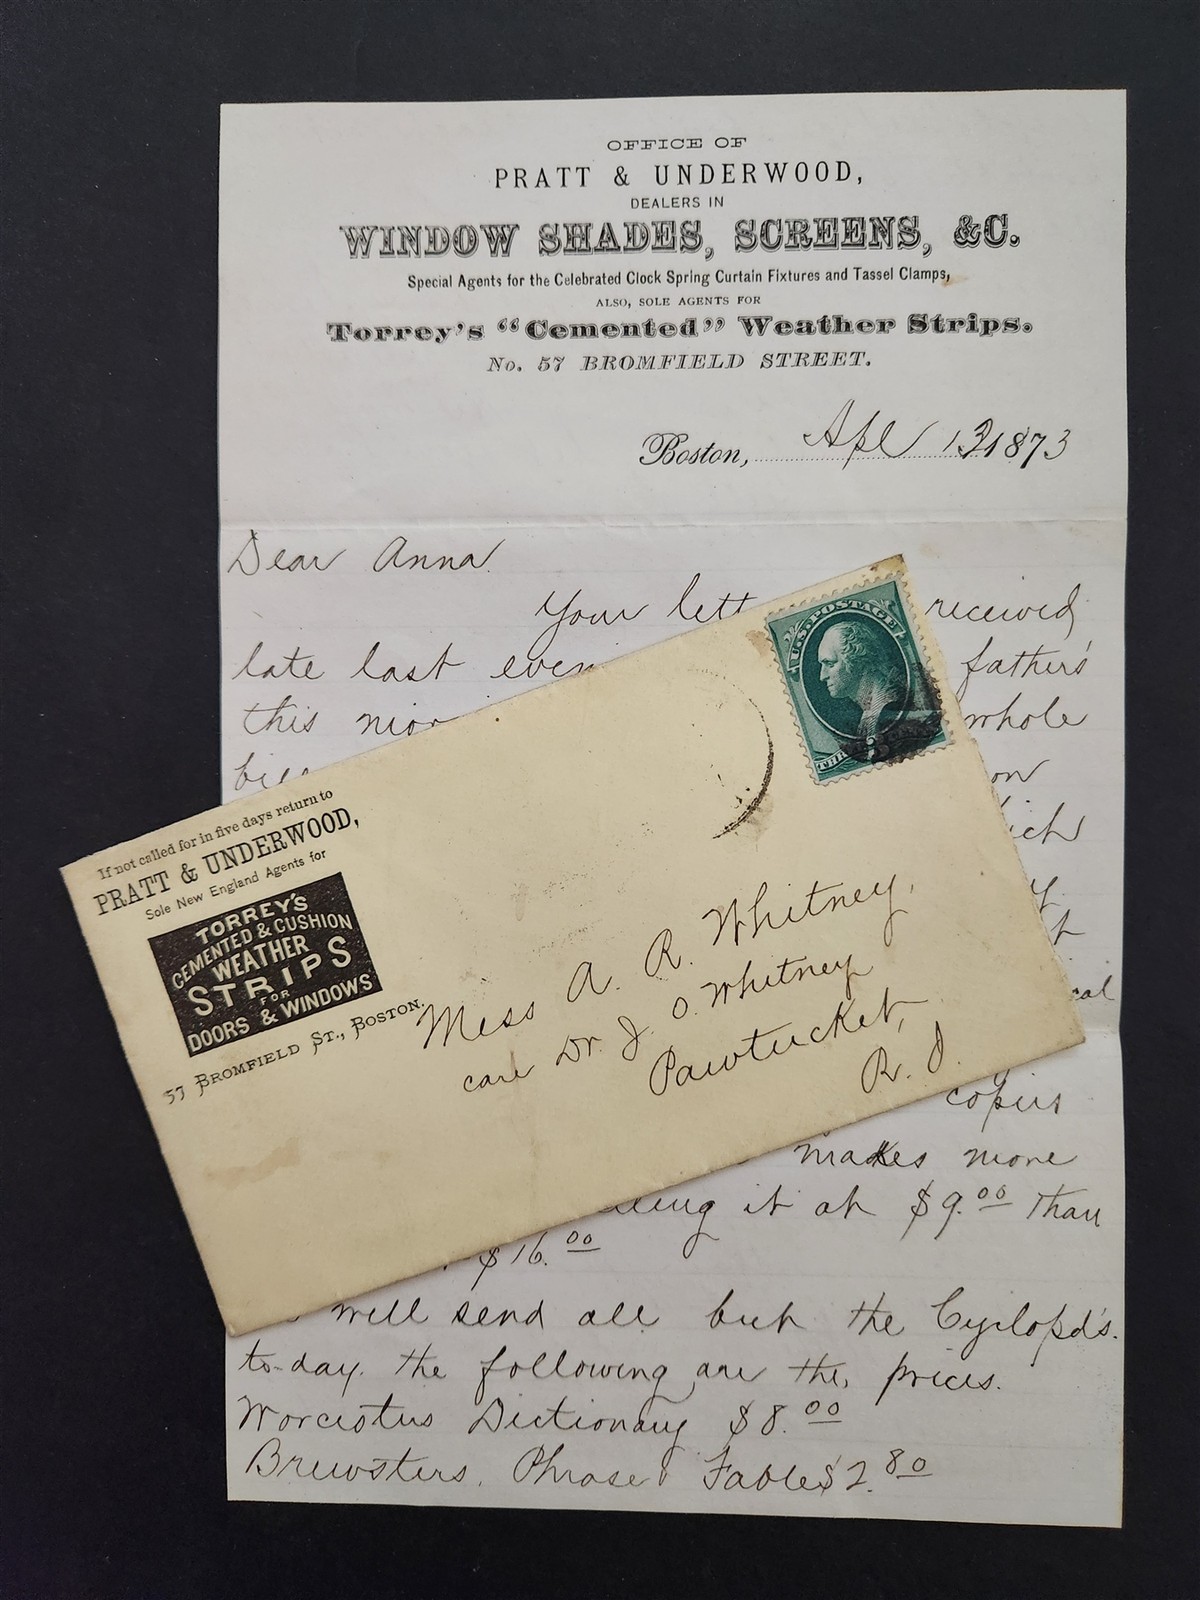 OFFICE OF
PRATT & UNDERWOOD,
DEALERS IN
WINDOW SHADES, SCREENS, &C.
Special Agents for the Celebrated Clock Spring Curtain Fixtures and Tassel Clamps,
ALSO, SOLE AGENTS FOR
Torrey's "Cemented" Weather Strips.
No. 57 BROMFIELD STREET.
Boston, Apl 13 1873
Dear Anna
Your received
late last father's
this whole
on
copies
makes more
it at $9.00 than
$16.00
will send all but the Cyclopd's.
to-day. the following are the prices.
Worcestus Dictionary $8.00
Brewsters. Phrase & Fable $2.80
If not called for in five days return to
PRATT & UNDERWOOD,
Sole New England Agents for
TORREY'S
CEMENTED & CUSHION
WEATHER
STRIPS
FOR
DOORS & WINDOWS
57 BROMFIELD ST., BOSTON.
U.S. POSTAGE
3
Miss A. R. Whitney,
care Dr. J. O. Whitney
Pawtucket,
R. I.